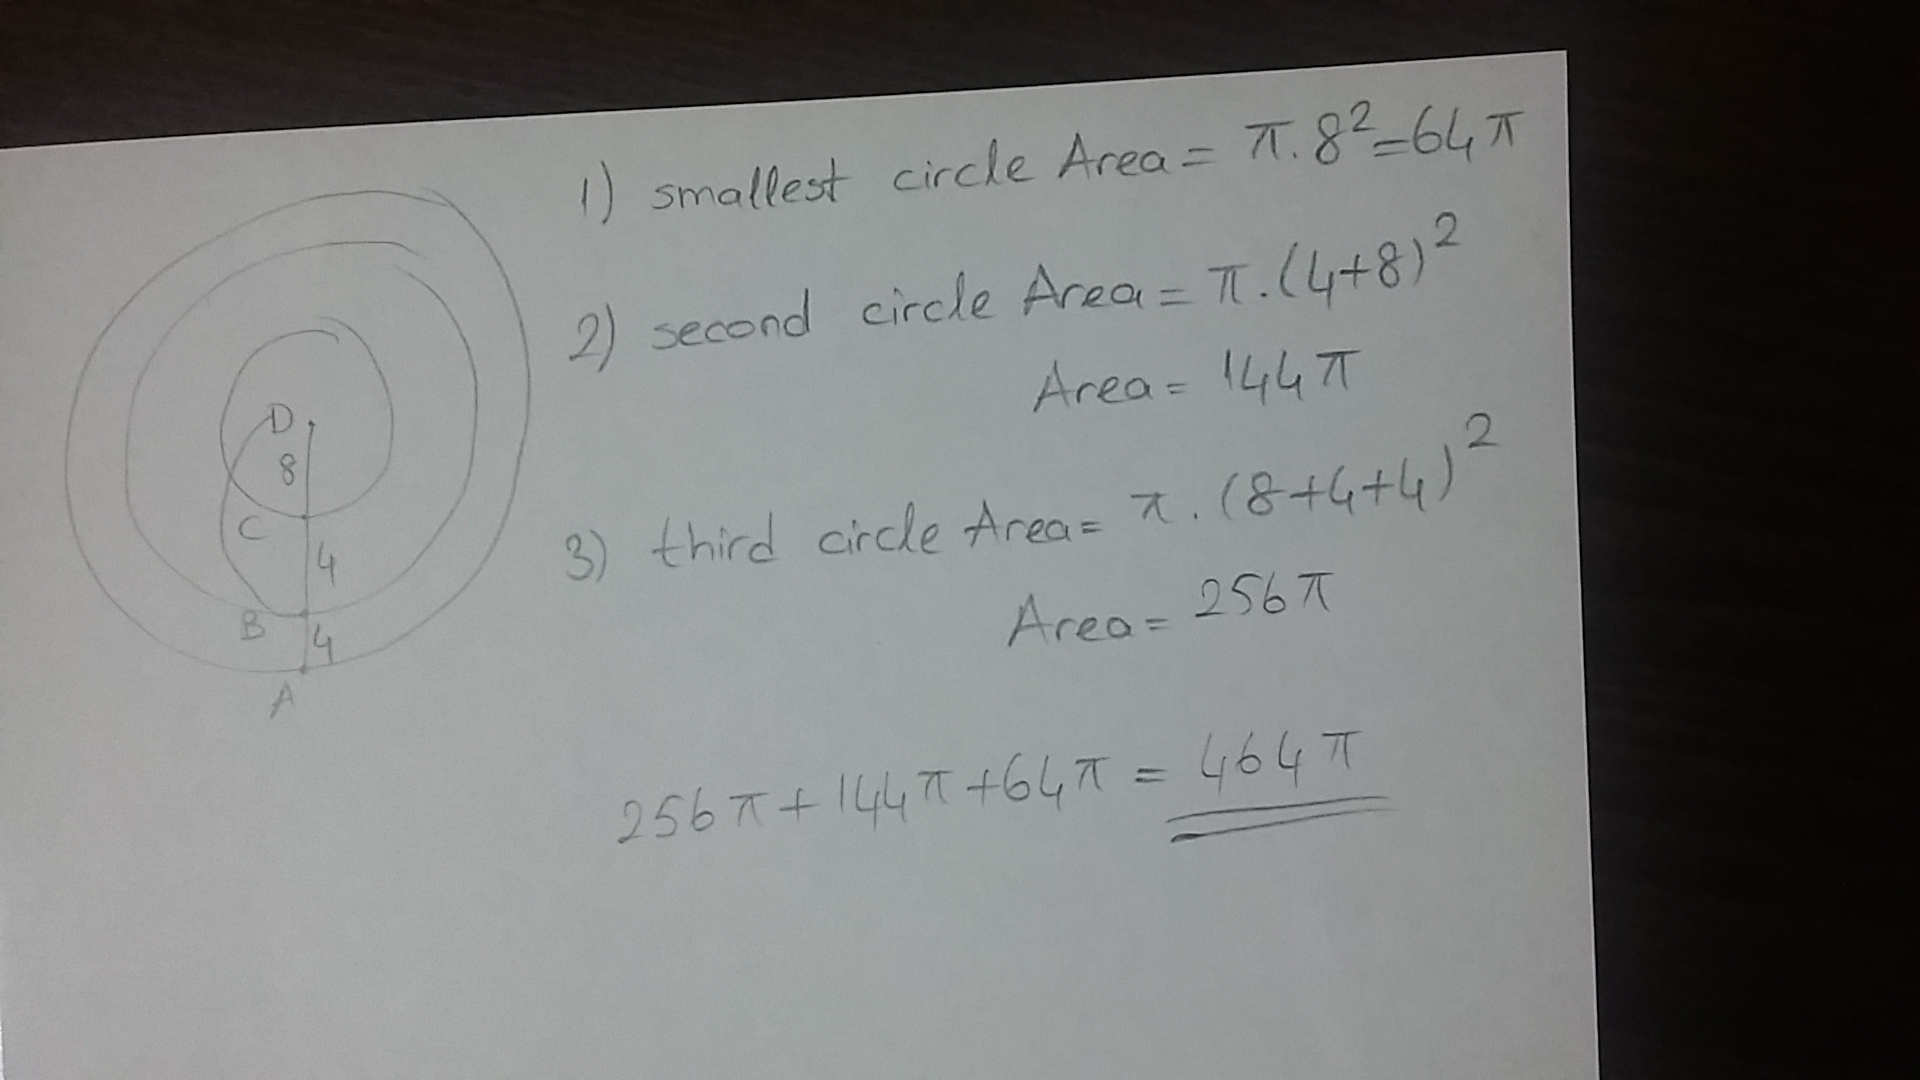 1) smallest circle Area = π.8²=64π
2) second circle Area = π.(4+8)²
Area = 144π
3) third circle Area = π.(8+4+4)²
Area = 256π
256π+144π+64π = 464π
D
8
C
4
B
4
A